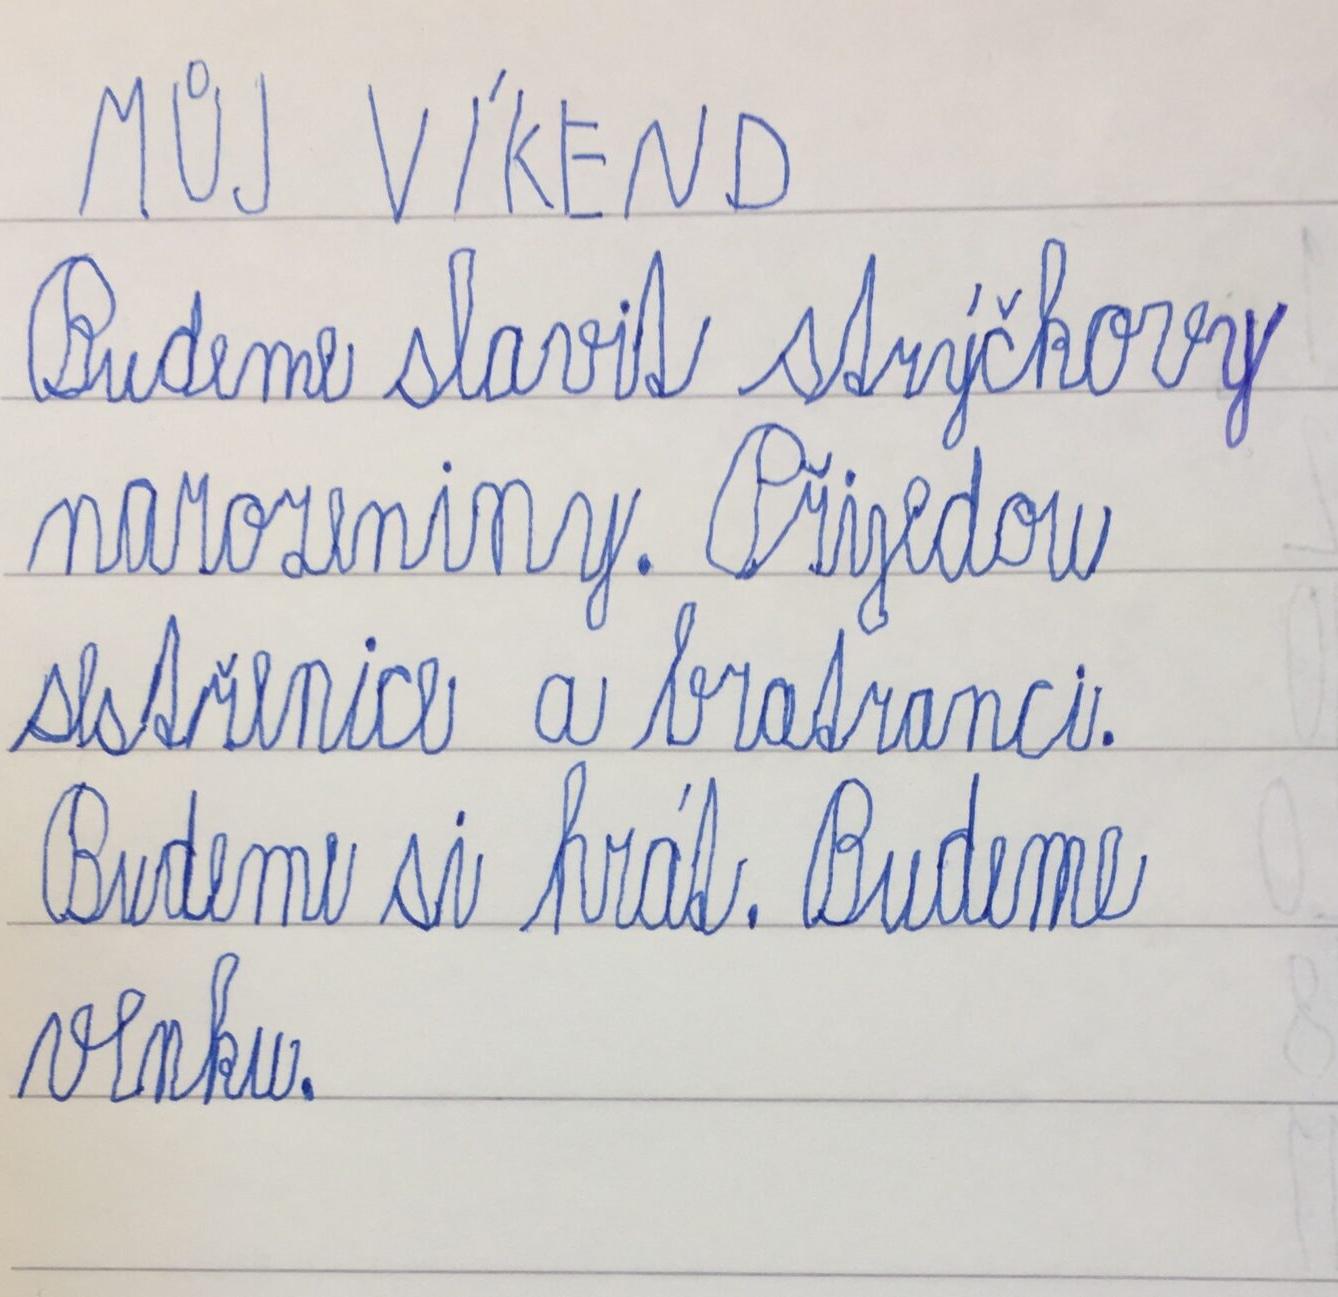 MŮJ VÍKEND
Budeme slavit strýčkovy
narozeniny. Přijedou
sestřenice a bratranci.
Budeme si hrát. Budeme
venku.